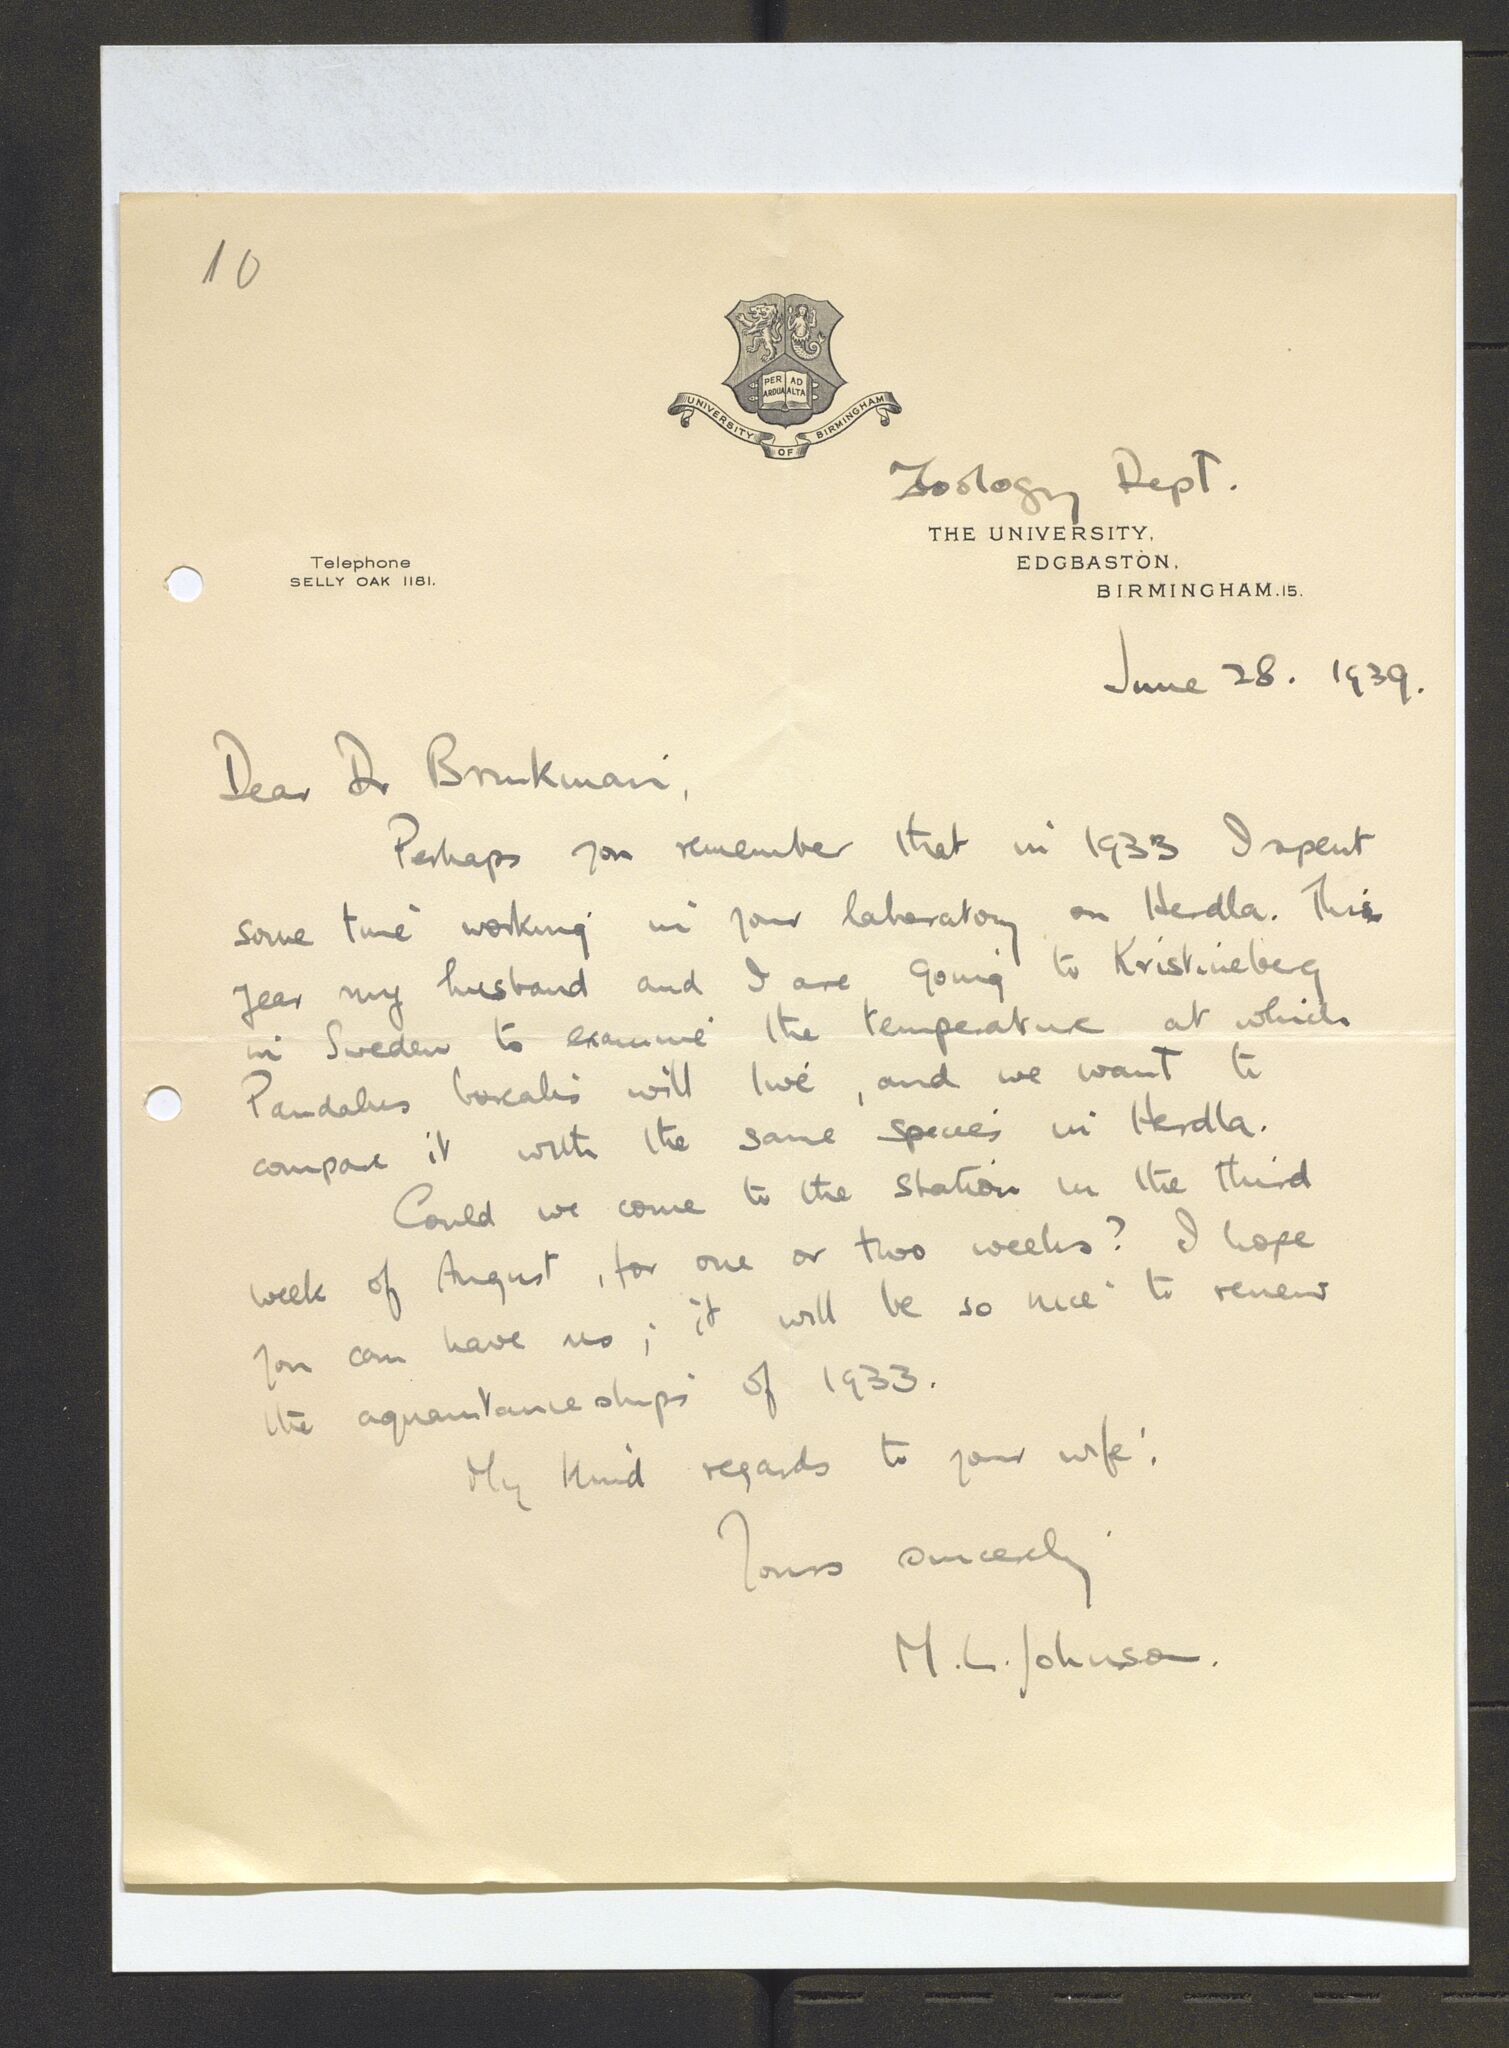 10
PER AD
ARDUA ALTA
UNIVERSITY OF BIRMINGHAM
Zoology Dept.
THE UNIVERSITY,
EDGBASTON,
BIRMINGHAM.15.
Telephone
SELLY OAK 1181.
June 28. 1939.
Dear Dr Brinkmann,
Perhaps you remember that in 1933 I spent
some time working in your laboratory on Herdla. This
year my husband and I are going to Kristineberg
in Sweden to examine the temperature at which
Pandalus borealis will live, and we want to
compare it with the same species in Herdla.
Could we come to the station in the third
week of August, for one or two weeks? I hope
you can have us; it will be so nice to renew
the aquaintanceships of 1933.
My kind regards to your wife.
Yours sincerely
M. L. Johnson.